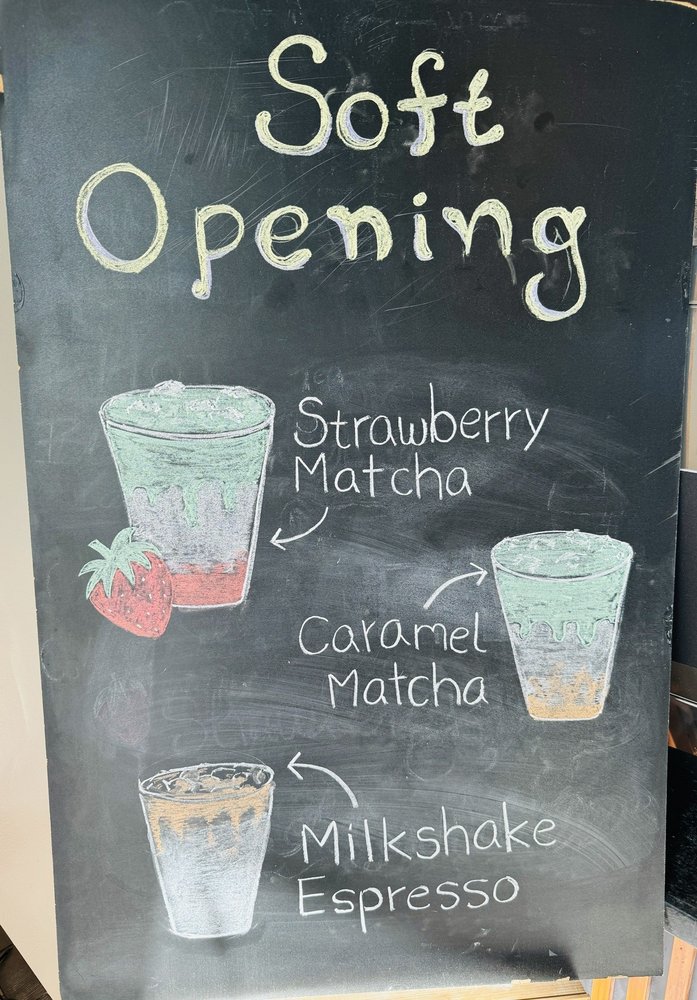 Soft
Opening
Strawberry
Matcha
Caramel
Matcha
Milkshake
Espresso